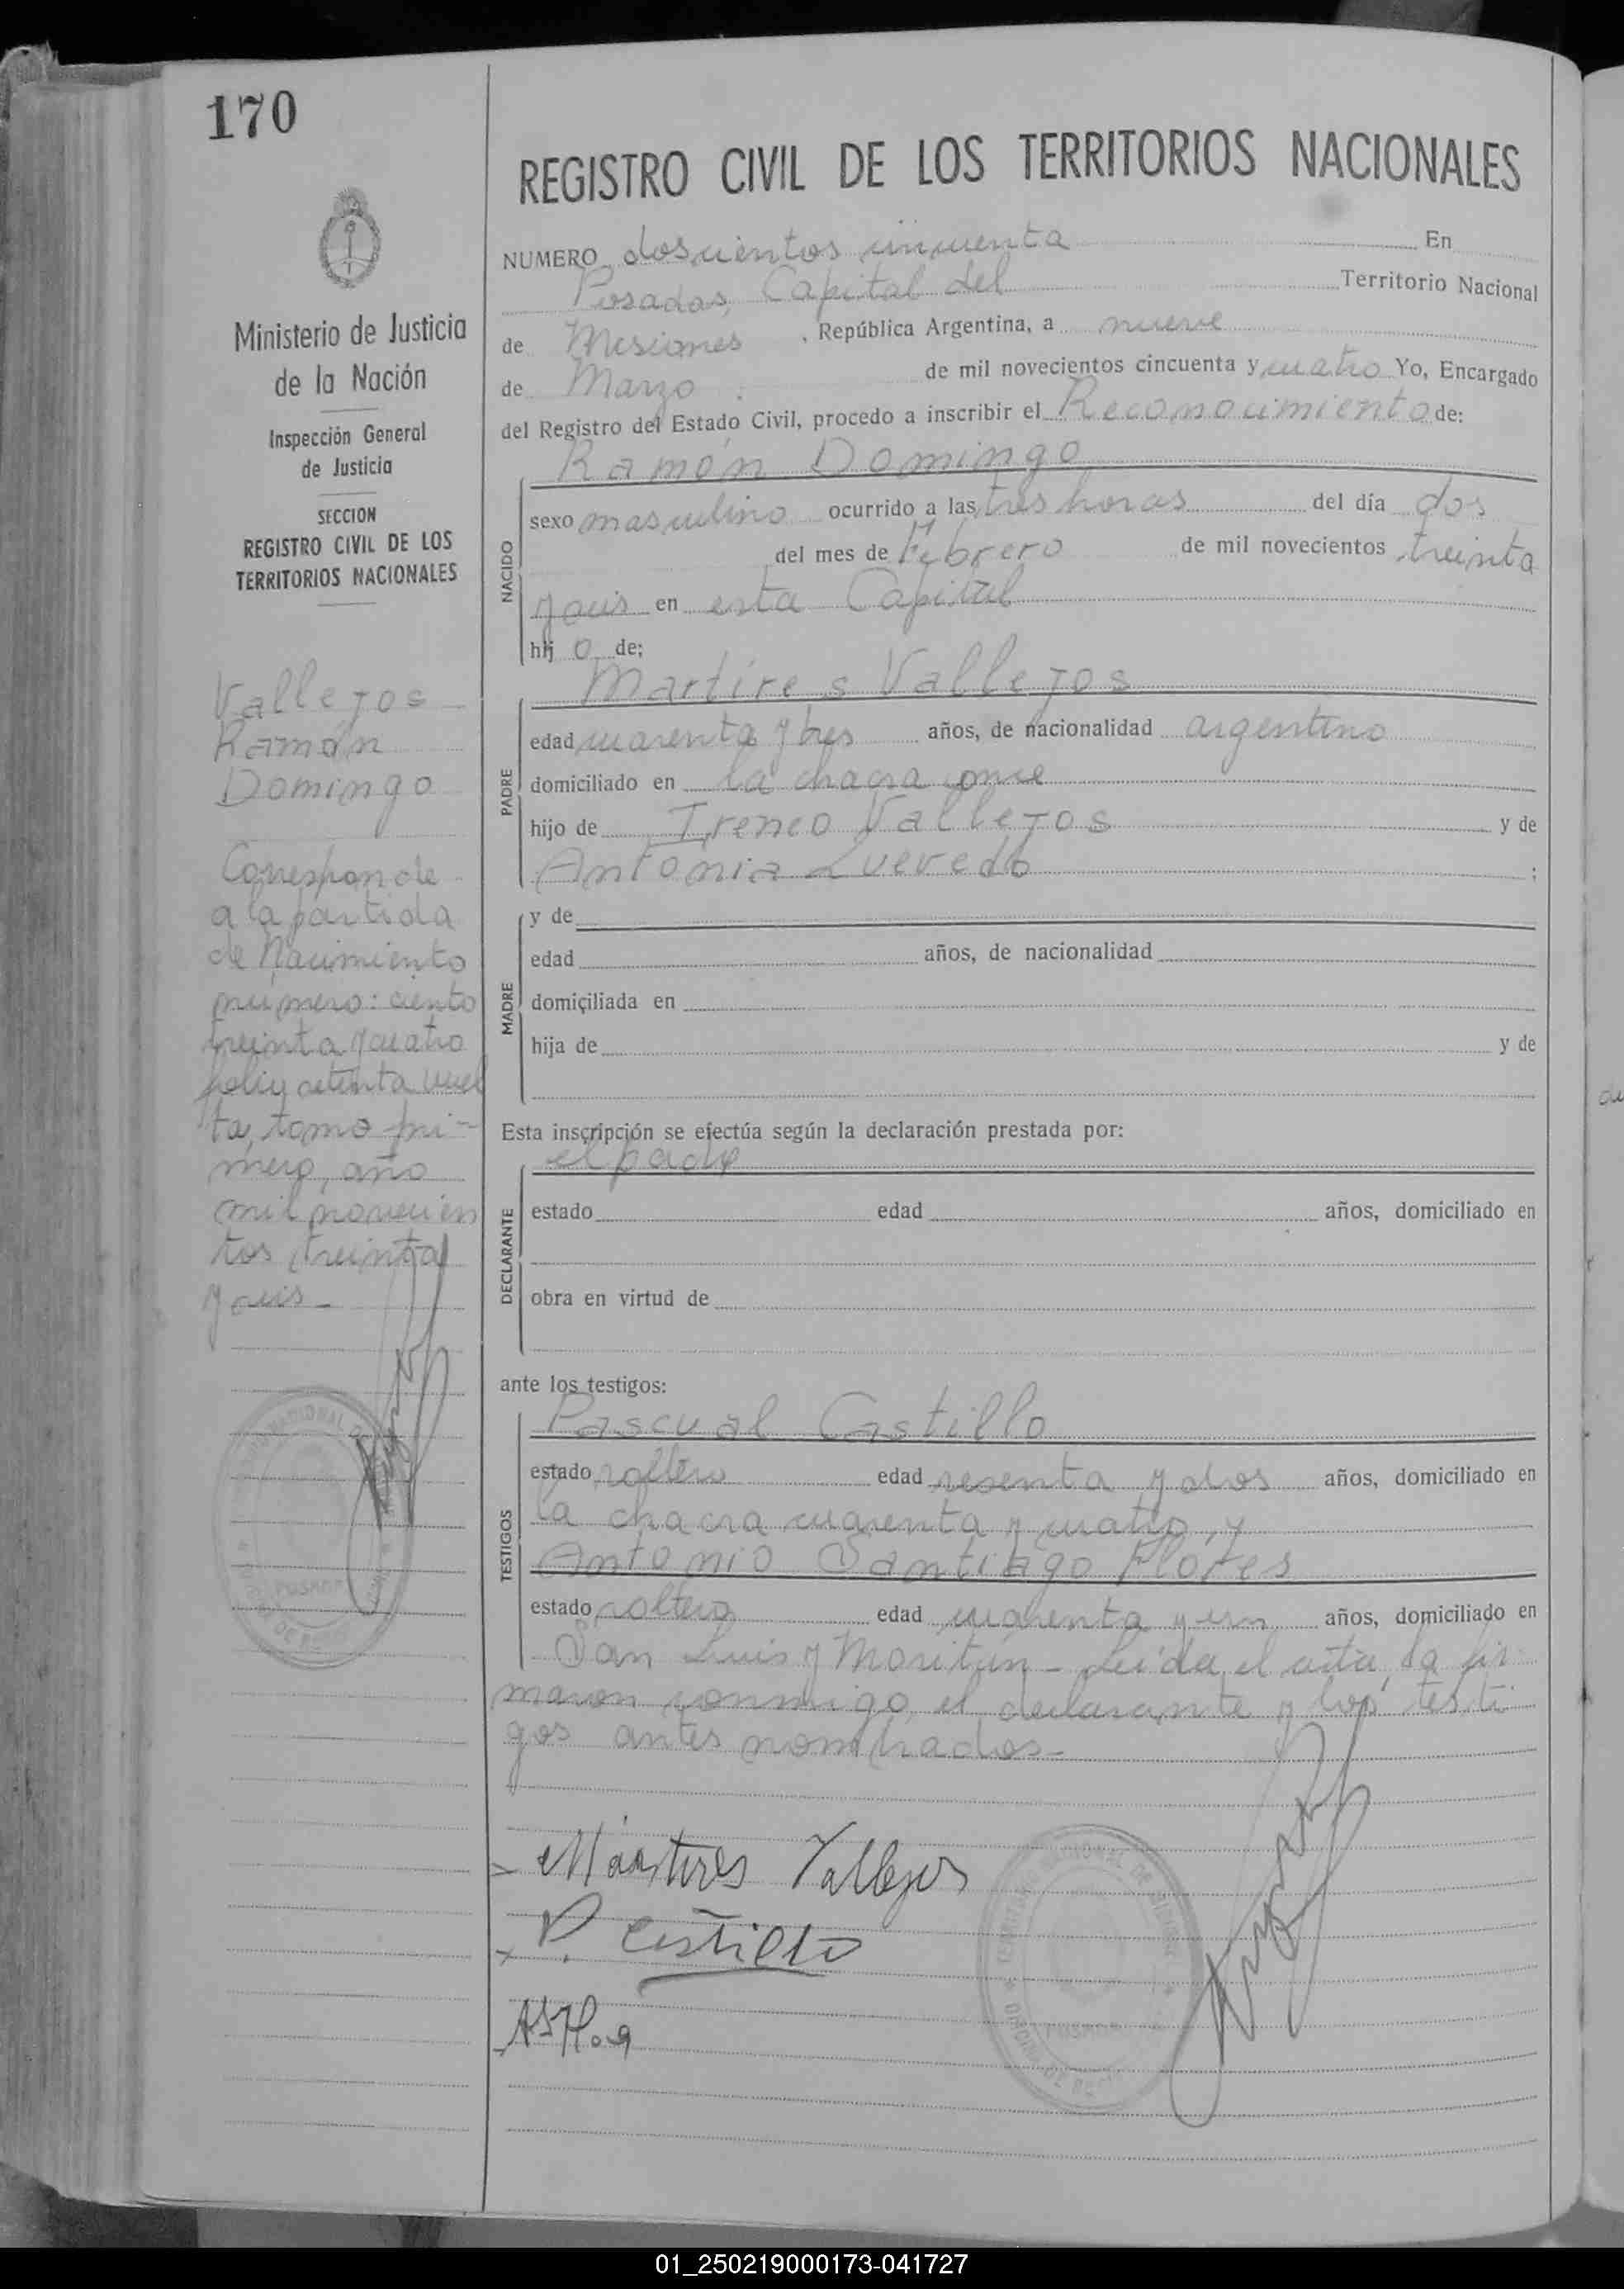 170
REGISTRO CIVIL DE LOS TERRITORIOS NACIONALES
NUMERO doscientos cincuenta En
Posadas, Capital del Territorio Nacional
de Misiones , República Argentina, a nueve
de Marzo de mil novecientos cincuenta y cuatro Yo, Encargado
del Registro del Estado Civil, procedo a inscribir el Reconocimiento de:
Ramón Domingo
NACIDO
sexo masculino ocurrido a las tres horas del día dos
del mes de Febrero de mil novecientos treinta
y seis en esta Capital
hij o de:
Martires Vallejos
PADRE
edad cuarenta y tres años, de nacionalidad argentino
domiciliado en la chacra once
hijo de Ireneo Vallejos y de
Antonia Quevedo ;
MADRE
y de
edad años, de nacionalidad
domiciliada en
hija de y de
Esta inscripción se efectúa según la declaración prestada por:
el padre
DECLARANTE
estado edad años, domiciliado en
obra en virtud de
ante los testigos:
Pascual Castillo
TESTIGOS
estado soltero edad sesenta y dos años, domiciliado en
la chacra cuarenta y cuatro, y
Antonio Santiago Flores
estado soltero edad cuarenta y un años, domiciliado en
San Luis y Moritán - Leída el acta, la fir
maron conmigo, el declarante y los testi
gos antes nombrados-
Mártires Vallejos
P. Castillo
Ministerio de Justicia
de la Nación
Inspección General
de Justicia
SECCION
REGISTRO CIVIL DE LOS
TERRITORIOS NACIONALES
Vallejos
Ramón
Domingo
Corresponde
a la partida
de Nacimiento
número: ciento
treinta y cuatro
folio setenta vuel
ta, tomo pri-
mero, año
mil novecien
tos treinta
y seis-
POSADAS
01_250219000173-041727